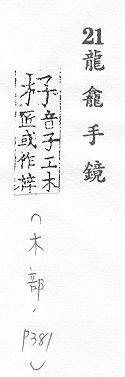 21龍龕手鏡
杍音子工木
匠或作梓
（木部，p381）